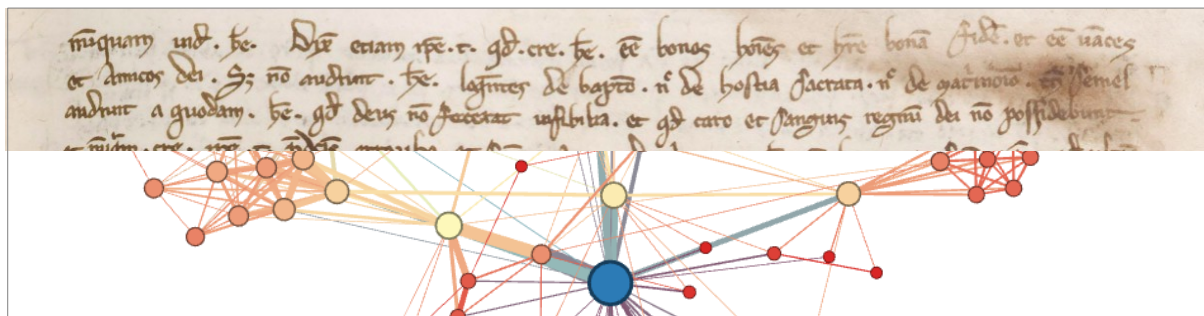 nūquam uid. he. Dix̄ etiam ip̄e. t. qd. cre. he. ēē bonos hōies et hr̄e bonā fidē. et ēē uāces
et amicos dei. Sꝫ nō audiuit. he. loqn̄tes de bapto. nͨ de hostia sacrata. nͨ de matimoīo. semel
audiuit a quodam. he. qd deus nō fecerat uisibilia. et qd caro et sanguis regnū dei nō possidebunt.